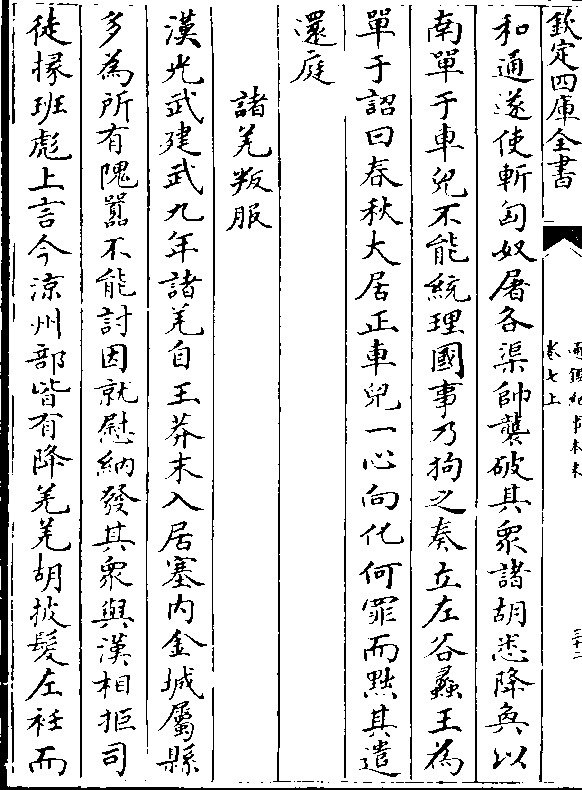 欽定四庫全書
通鑑紀事本末
卷七上
三十二
和通遂使斬匈奴屠各渠帥襲破其衆諸胡悉降奐以
南單于車兒不能統理國事乃拘之奏立左谷蠡王為
單于詔曰春秋大居正車兒一心向化何罪而黜其遣
還庭
諸羌叛服
漢光武建武九年諸羌自王莽末入居塞内金城屬縣
多為所有隗嚻不能討因就慰納發其衆與漢相拒司
徒掾班彪上言今涼州部皆有降羌羌胡披髮左衽而